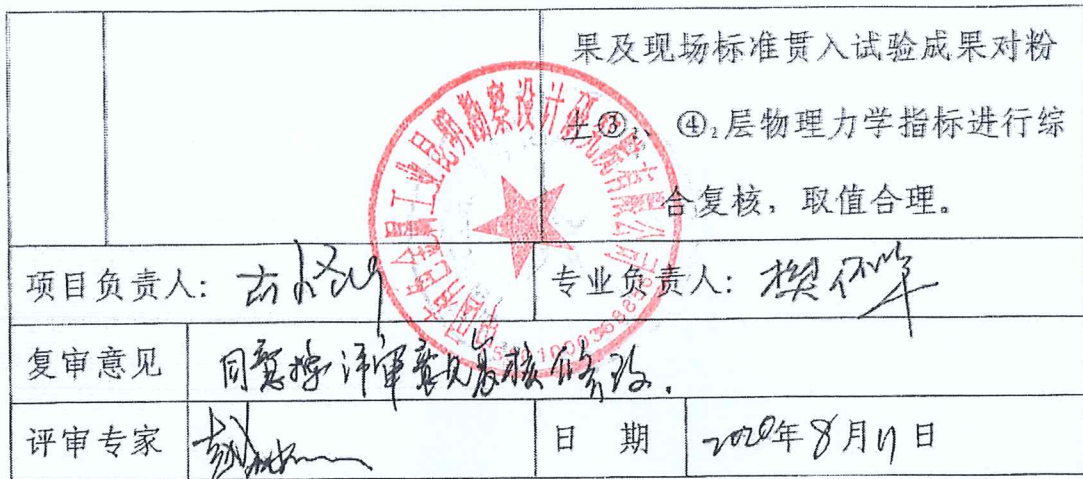 果及现场标准贯入试验成果对粉
土③₂、④₂层物理力学指标进行综
合复核，取值合理。
中国有色金属工业昆明勘察设计研究院有限公司
项目负责人：
专业负责人：樊
复审意见 同意按评审意见复核修改.
评审专家
日 期 2020年8月11日